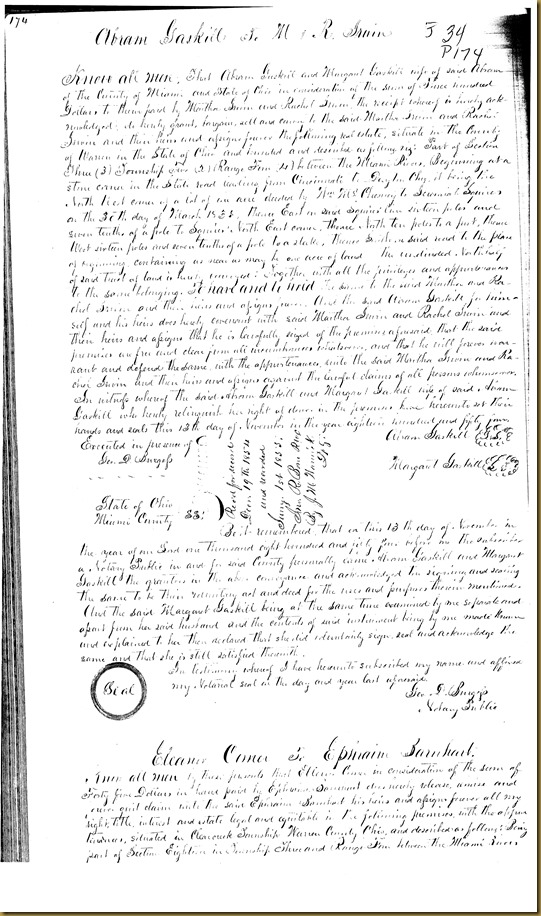 174
Abram Gaskill To M & R. Irwin
J 34
P 174
Know all men, That Abram Gaskill and Margaret Gaskill wife of said Abram
of the County of Miami and State of Ohio in consideration of the sum of Three hundred
Dollars to them paid by Martha Irwin and Rachel Irwin the receipt whereof is hereby ack-
nowledged; do hereby grant, bargain, sell and convey to the said Martha Irwin and Rachel
Irwin and their heirs and assigns forever the following real estate, situate in the County
of Warren in the State of Ohio and bounded and described as follows viz: Part of Section
Three (3) Township (2) Range Four (4) between the Miami Rivers, Beginning at a
stone corner in the State road leading from Cincinnati to Dayton City, it being the
North West corner of a lot of an acre deeded by Wm Mc Chesney to Jeremiah Squires
on the 26th day of March 1835, thence East in said Squires' line sixteen poles and
seven tenths of a pole to Squires' North East corner, thence North ten poles to a post, thence
West sixteen poles and seven tenths of a pole to a stake, thence South in said road to the place
of beginning containing as near as may be one acre of land the undivided
of said tract of land is hereby conveyed: Together with all the privileges and appurtenances
to the same belonging. To have and to hold the same to the said Martha and Ra-
chel Irwin and their heirs and assigns forever. And the said Abram Gaskill for him-
self and his heirs does hereby covenant with said Martha Irwin and Rachel Irwin and
their heirs and assigns that he is lawfully seized of the premises aforesaid, that the said
premises are free and clear from all incumbrances whatsoever, and that he will forever war-
rant and defend the same, with the appurtenances, unto the said Martha Irwin and Ra-
chel Irwin and their heirs and assigns against the lawful claims of all persons whomsoever.
In witness whereof the said Abram Gaskill and Margaret Gaskill wife of said Abram
Gaskill who hereby relinquish her right of dower in the premises have hereunto set their
hands and seals this 13th day of November in the year eighteen hundred and fifty four
Executed in presence of
Geo. D. Burgess
Recd for record
Decr 19th 1854
and recorded
Jany 1st 1855
By J. M.
Abram Gaskill
Margaret Gaskill
State of Ohio
Miami County SS:
Be it remembered, that on this 13th day of November in
the year of our Lord one thousand eight hundred and fifty four before me the subscriber
a Notary Public in and for said County personally came Abram Gaskill and Margaret
Gaskill the grantors in the above conveyance and acknowledged the signing and sealing
the same to be their voluntary act and deed for the uses and purposes therein mentioned.
And the said Margaret Gaskill being at the same time examined by me separate and
apart from her said husband and the contents of said instrument being by me made known
and explained to her then declared that she did voluntarily sign, seal and acknowledge the
same and that she is still satisfied therewith.
In testimony whereof I have hereunto subscribed my name and affixed
my Notarial seal on the day and year last aforesaid.
Seal
Geo. D. Burgess
Notary Public
Eleanor Comer To Ephraim Barnhart.
Know all men by these presents that Comer in consideration of the sum of
Forty five Dollars in hand paid by Ephraim Barnhart does hereby release, remise and
forever quit claim unto the said Ephraim Barnhart his heirs and assigns forever all my
right, title, interest and estate legal and equitable in the following premises, with the appur-
tenances, situated in Clearcreek Township Warren County Ohio, and described as follows: Being
part of Section Eighteen in Township Three and Range Four between the Miami Rivers